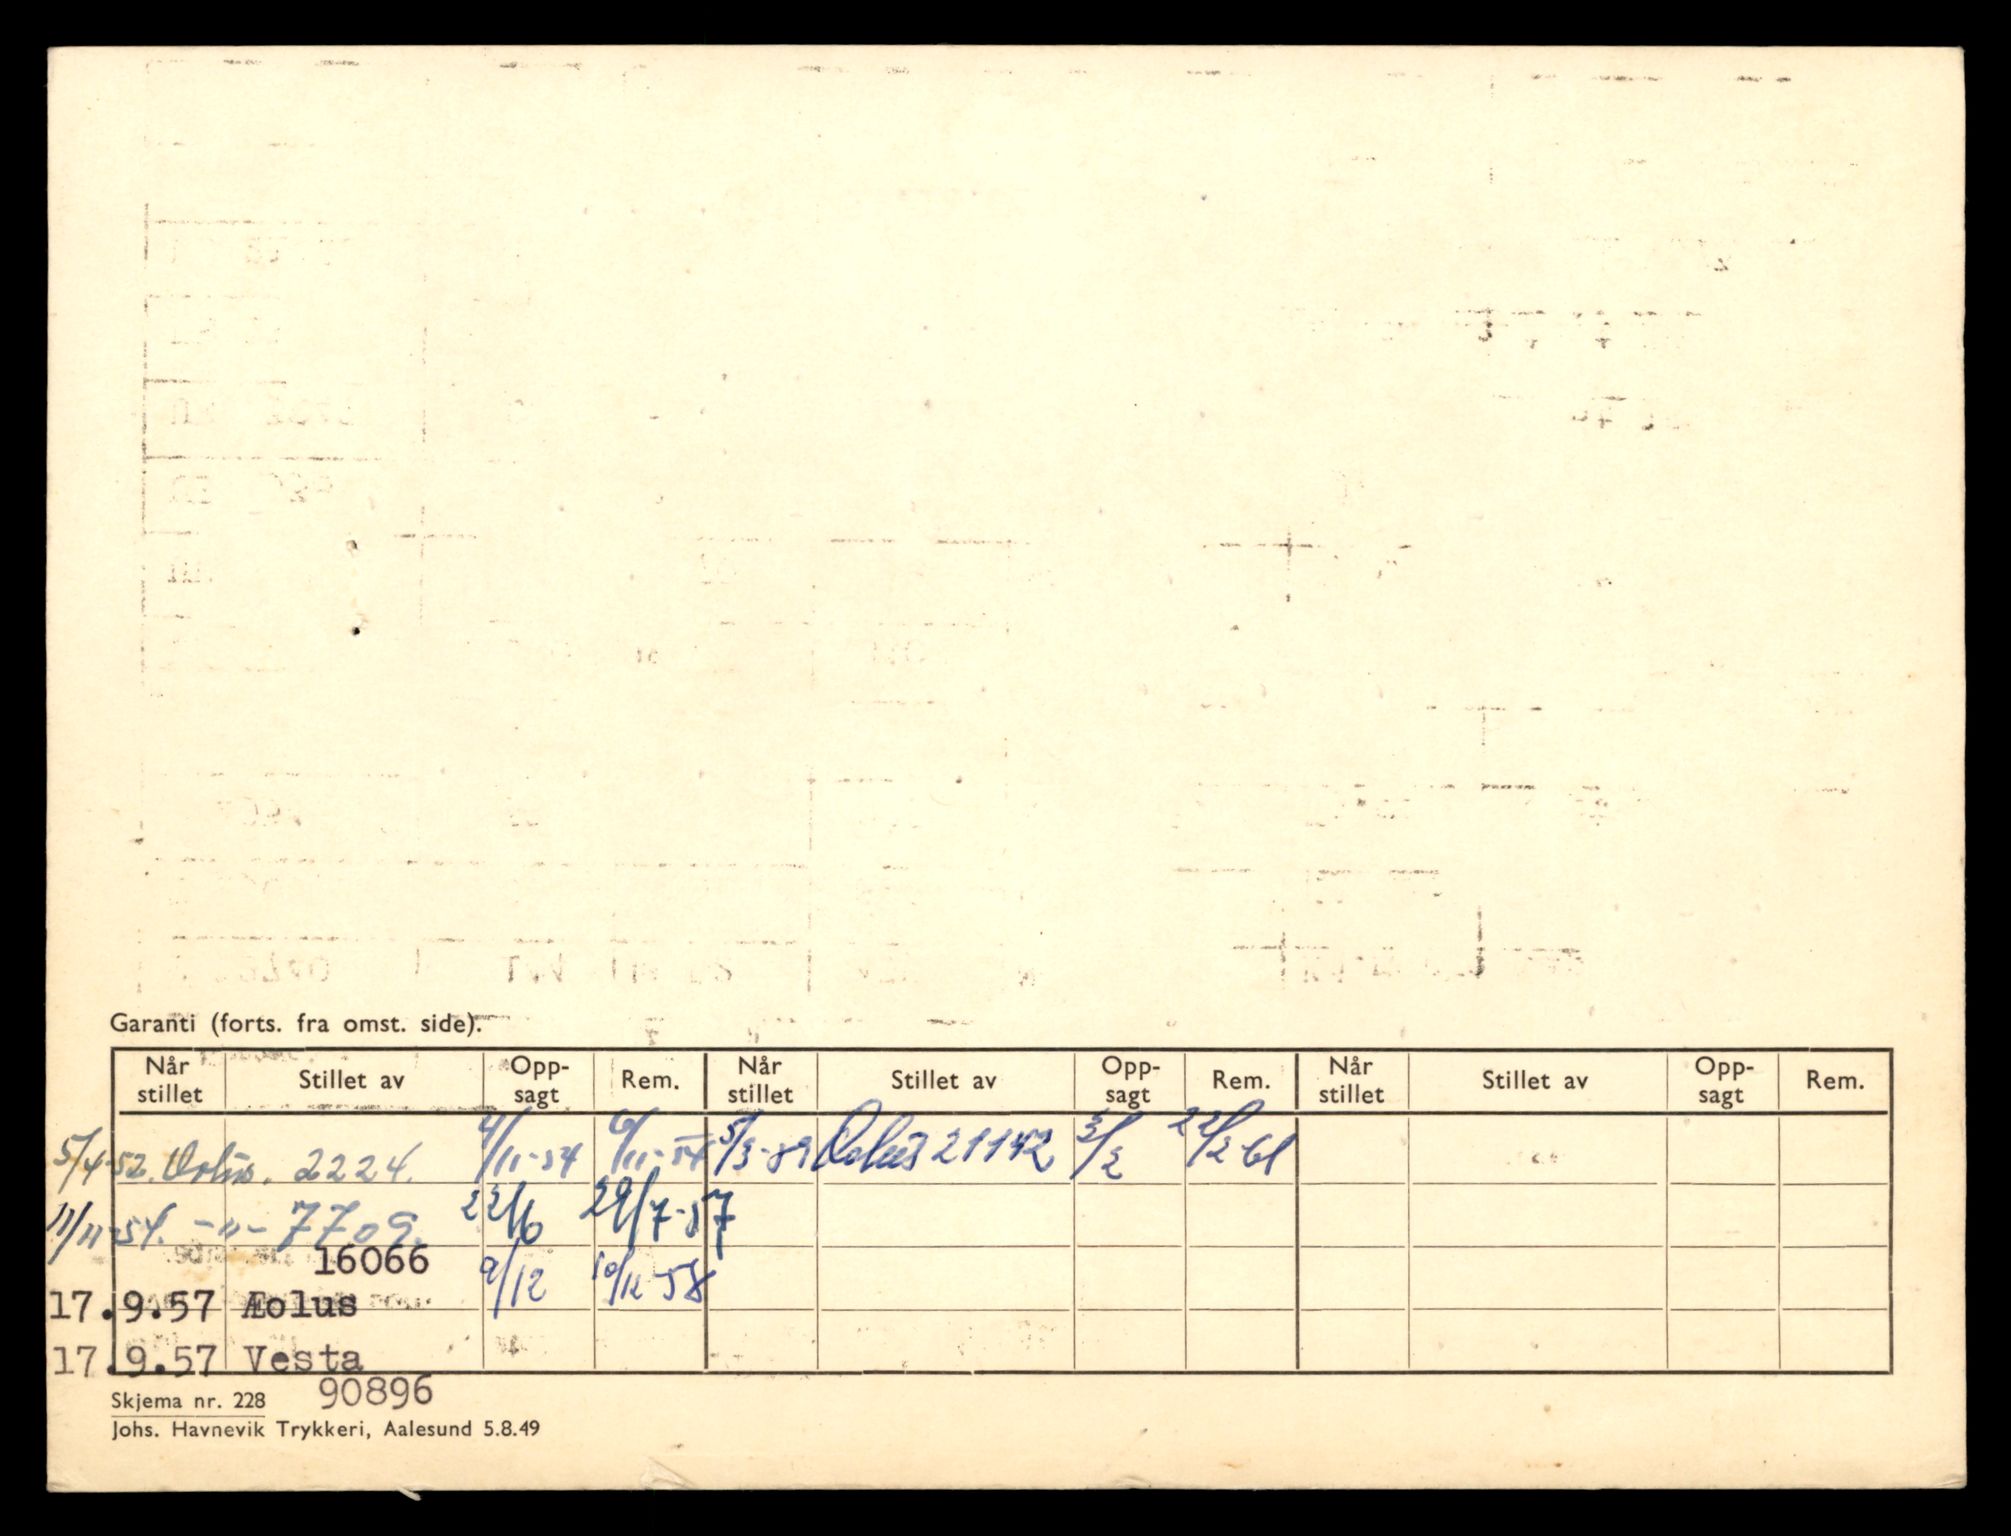 Garanti (forts. fra omst. side).
Når stillet Stillet av Opp-sagt Rem. Når stillet Stillet av Opp-sagt Rem. Når stillet Stillet av Opp-sagt Rem.
5/4-52. 2224. 4/11-54 6/11-54 5/3-59 21142 3/2 22/2-61
11/11-54. -"- 7709. 22/6 29/7-57
16066
17.9.57 Æolus 9/12 10/12-58
17.9.57 Vesta
90896
Skjema nr. 228
Johs. Havnevik Trykkeri, Aalesund 5.8.49